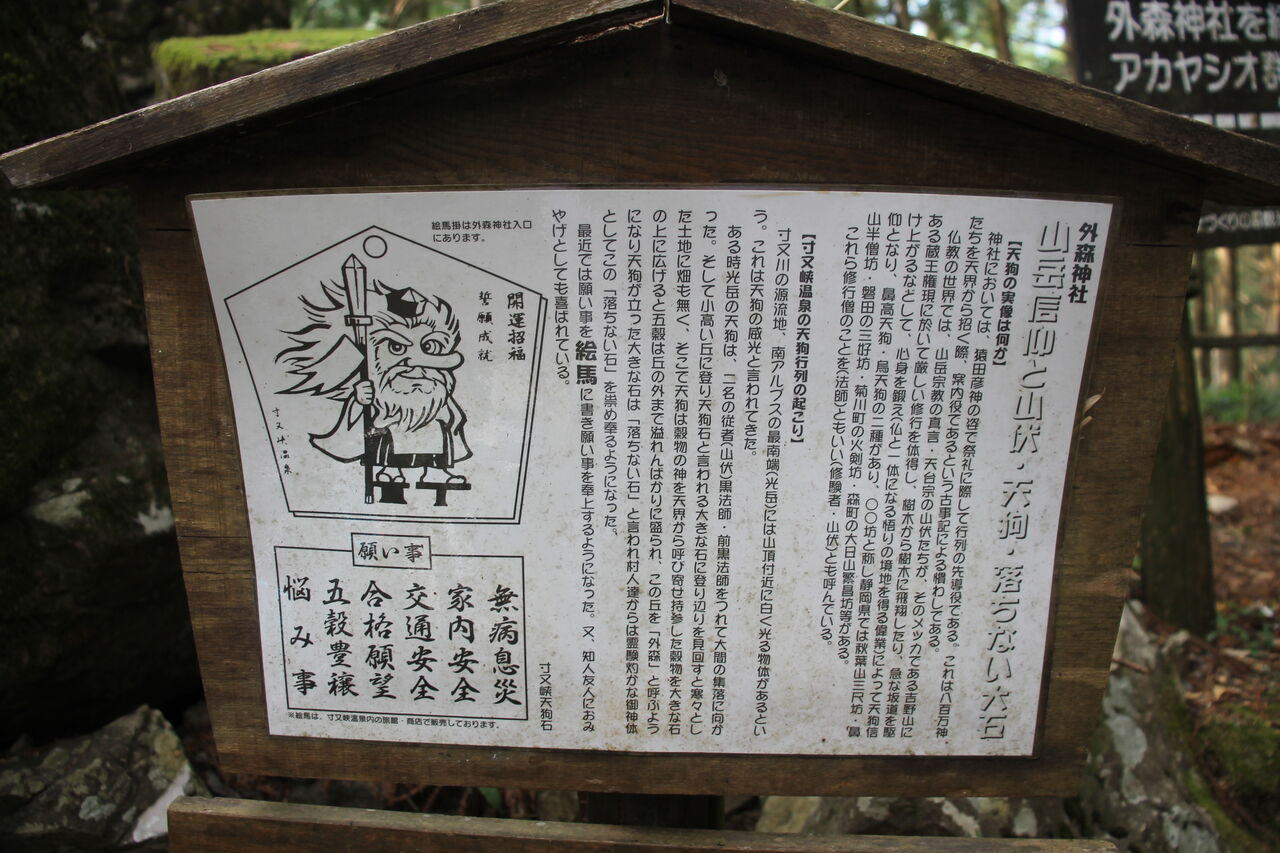 外森神社
山岳信仰と山伏・天狗・落ちない大石
【天狗の実像は何か】
神社においては、猿田彦神の姿で祭礼に際して行列の先導役である。これは八百万神
たちを天界から招く際、案内役であるという古事記による慣わしである。
仏教の世界では、山岳宗教の真言・天台宗の山伏たちが、そのメッカである吉野山に
ある蔵王権現に於いて厳しい修行を体得し、樹木から樹木に飛翔したり、急な坂道を駆
け上がるなどして、心身を鍛え(仏と一体になる悟りの境地を得る偉業)によって天狗信
仰となり、鼻高天狗・烏天狗の二種があり、〇〇坊と称し静岡県では秋葉山三尺坊・鼻
山半僧坊・磐田の三好坊・菊川町の火剣坊・森町の大日山繁昌坊等がある。
これら修行僧のことを(法師)ともいい(修験者・山伏)とも呼んでいる。
【寸又峡温泉の天狗行列の起こり】
寸又川の源流地、南アルプスの最南端(光岳)には山頂付近に白く光る物体があるとい
う。これは天狗の威光と言われてきた。
ある時光岳の天狗は、二名の従者(山伏)黒法師・前黒法師をつれて大間の集落に向か
った。そして小高い丘に登り天狗石と言われる大きな石に登り辺りを見回すと寒々とし
た土地に畑も無く、そこで天狗は穀物の神を天界から呼び寄せ持参した穀物を大きな石
の上に広げると五穀は丘の外まで溢れんばかりに盛られ、この丘を「外森」と呼ぶよう
になり天狗が立った大きな石は「落ちない石」と言われ村人達からは霊験灼かな御神体
としてこの「落ちない石」を崇め奉るようになった。
最近では願い事を絵馬に書き願い事を奉上するようになった。又、知人友人におみ
やげとしても喜ばれている。
寸又峡天狗石
絵馬掛は外森神社入口
にあります。
開運招福
誓願成就
寸又峡温泉
願い事
無病息災
家内安全
交通安全
合格願望
五穀豊穣
悩み事
※絵馬は、寸又峡温泉内の旅館・商店で販売しております。
外森神社を
アカヤシオ群
づくりの